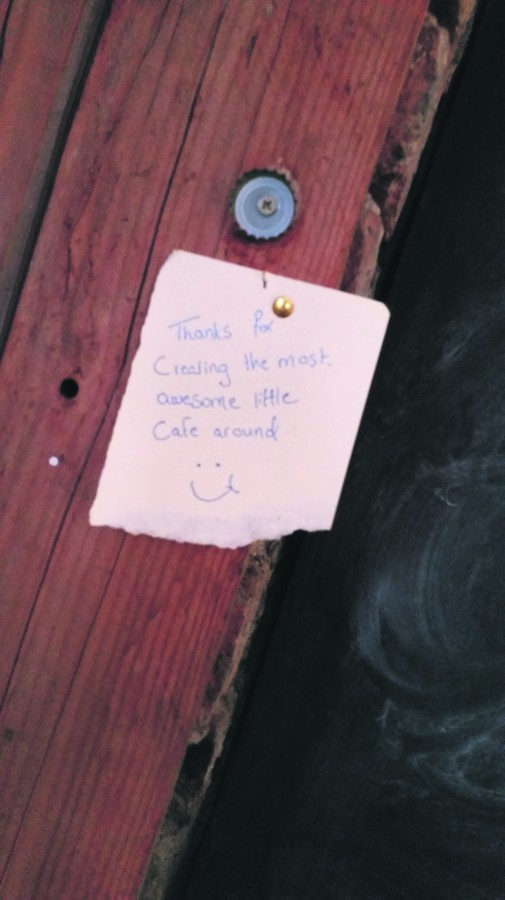 Thanks for
Creating the most
awesome little
Cafe around